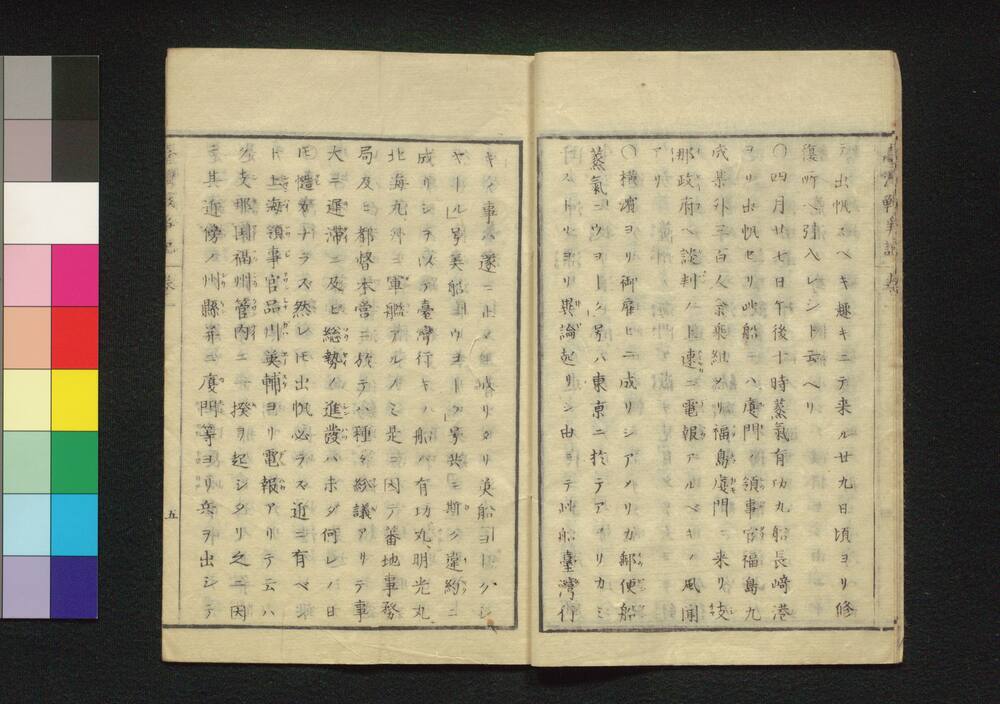 テ出帆スベキ趣キニテ来ル廿九日頃ヨリ修
復所ヘ引入レシト云ヘリ
〇四月廿七日午後十時蒸氣有功丸船長﨑港
ヨリ出帆セリ此船ニハ廈門ノ領事官福島九
成某外三百人余乗組メリ福島廈門ニ来リ支
那政府ヘ談判ノ上速ニ電報アルベキノ風聞
アリ
〇橫濱ヨリ御雇ヒニ成リシアメリカ郵便船
蒸氣ニウヨーク号ハ東京ニ於テアメリカミ
ニストルヨリ異論起リシ由ニテ此船臺灣行
キノ事ハ遂ニ止メ
英船ヨーク
ヤール号美船ニウヨーク号共ニ斯ク違約ニ
成リシヲ以テ臺灣行キノ船ハ有功丸、明光丸、
北海丸外ニ軍艦アルノミ是ニ因テ蕃地事務
局及ヒ都督本營ニ於テハ種々紛議アリテ事
大ニ遅滞ニ及ヒ総勢ノ進發ハホダ何レノ日
ト上海領事官品川英輔ヨリ電報アリテ云ハ
ク支那国福州管内ニテ一揆ヲ起シタリ之ニ因
テ其近傍ノ州縣并ニ廈門等ヨリ兵ヲ出シテ
五